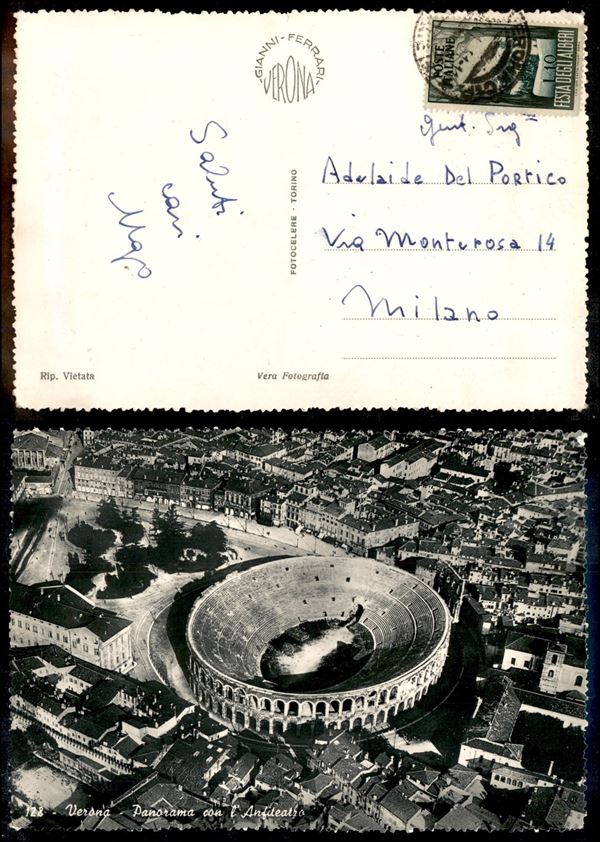 GIANNI-FERRARI-
VERONA
POSTE ITALIANE
L.10
FESTA DEGLI ALBERI
Gent. Sig.na
Adelaide Del Portico
Via Monterosa 14
Milano
Saluti
cari
FOTOCELERE - TORINO
Rip. Vietata
Vera Fotografia
128 - Verona - Panorama con l'Anfiteatro